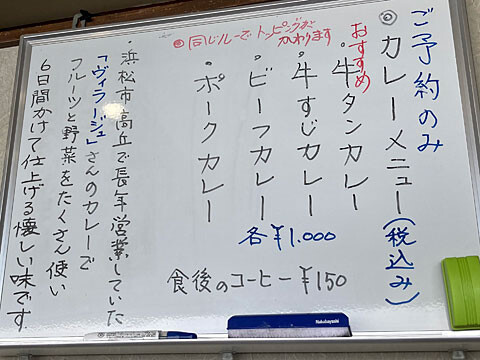 ご予約のみ
◎カレーメニュー(税込み)
おすすめ
・牛タンカレー
・牛すじカレー
・ビーフカレー
・ポークカレー
各¥1.000
◎同じルーで、トッピングが
かわります
食後のコーヒー¥150
・浜松市高丘で長年営業していた
「ヴィラージュ」さんのカレーで
フルーツと野菜をたくさん使い
6日間かけて仕上げる懐しい味です
Nakabayashi